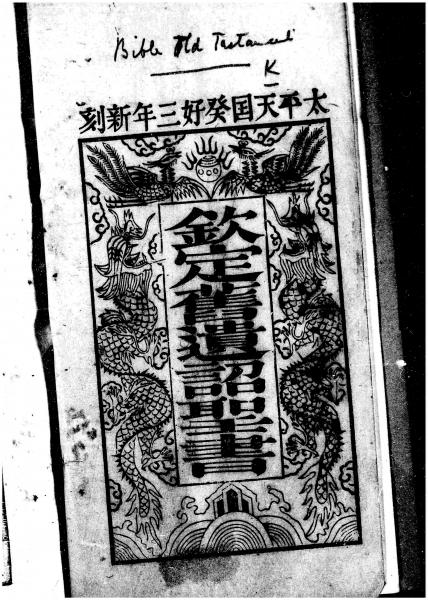 Bible Old Testament
K
太平天囯癸好三年新刻
欽定舊遺詔聖書